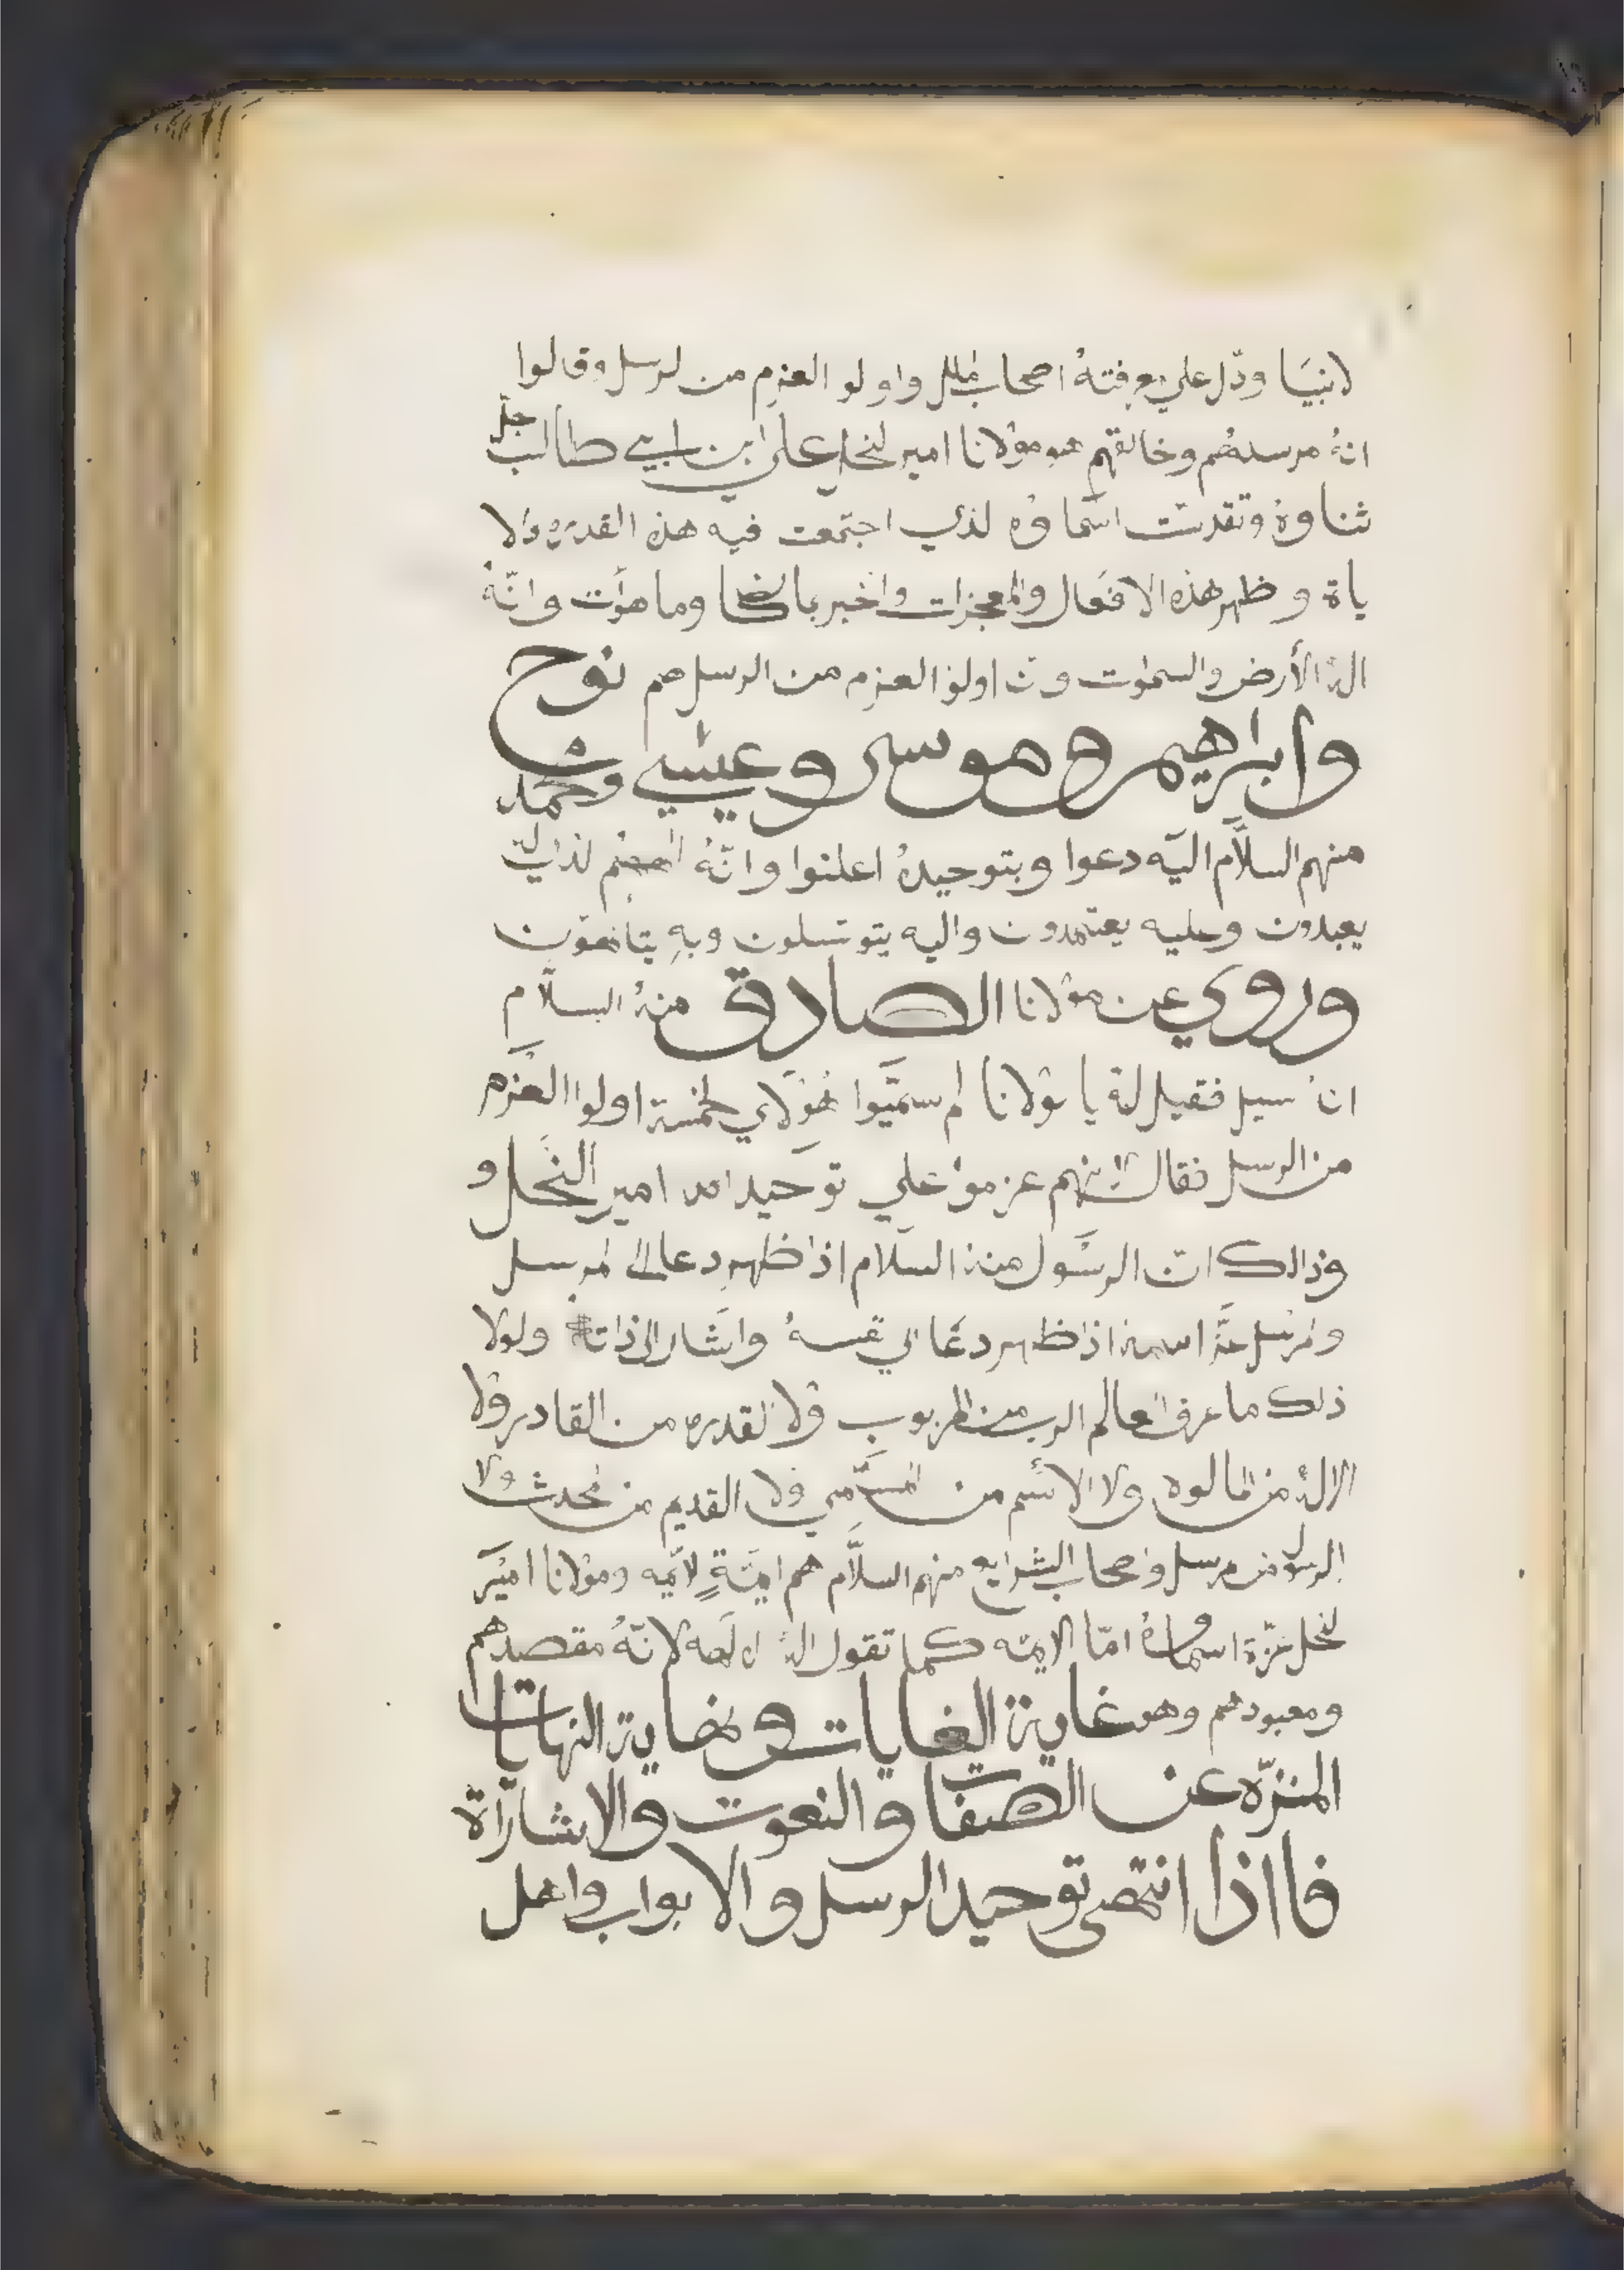 لانبيَا ودّل علي معرفتهُ اصحاب لملل واولو العزم من لرسل وقالوا
انهُ مرسلهُم وخالقهم هو مولانا امير لنحل علي ابن ابي طالب جل
ثناوهُ وتقدست اسما وُه لذي اجتمعت فيه هذه القدره والا
ياة وظهر هذه الافعال والمعجزات واخبر بما كا وما هوأت وانّهُ
الهُ الأرض والسموٰت و ن اولوا لعزم من الرسل هم نوح
وابراهيم وموسى وعيسي ومحمد
منهم السلاَّم اليَه دعوا وبتوحيدهُ اعلنوا وانّهُ لذي
يعبدون وعليه يعتمدون واليه يتوسلون وبهِ
وروي عن مولانا الصادق منهُ السلاَّم
انهُ سيل فقيل لهُ يا مولانا لم سمّيوا هٰوَلاي لخمسة اولوا العَزم
من الرسل فقال لانهم عزموا علي توحيد امير النحل و
وذالك ان الرسَول منهُ السَلام اذا ظهر دعا الى لمرسل
ولمرسل عزّ اسمهُ اذا ظهر دعَا الي نفسهُ واشَار الى ذاتهُ ولولا
ذلك ما عرف العالم الرب من المربوب ولا لقدره من القادر ولا
الالهُ من المالوه ولا الاسم من لمسَمّي ولا القديم من لمحدث ولا
الرسول من مرسل وصحاب الشرايع منهم السلاَّم هم ايمَّةٍ لايّمه ومولانا اميَر
لنحل عزّة اسماوهُ امّا الايمّه كما تقول الهُ لالهه لانّهُ مقصدهم
ومعبودهم وهو غاية الغايات ونهاية النهايات
المنزّه عن الصفات والنعوت والاشاراة
فااذا انتهى توحيد الرسل والابواب واهل